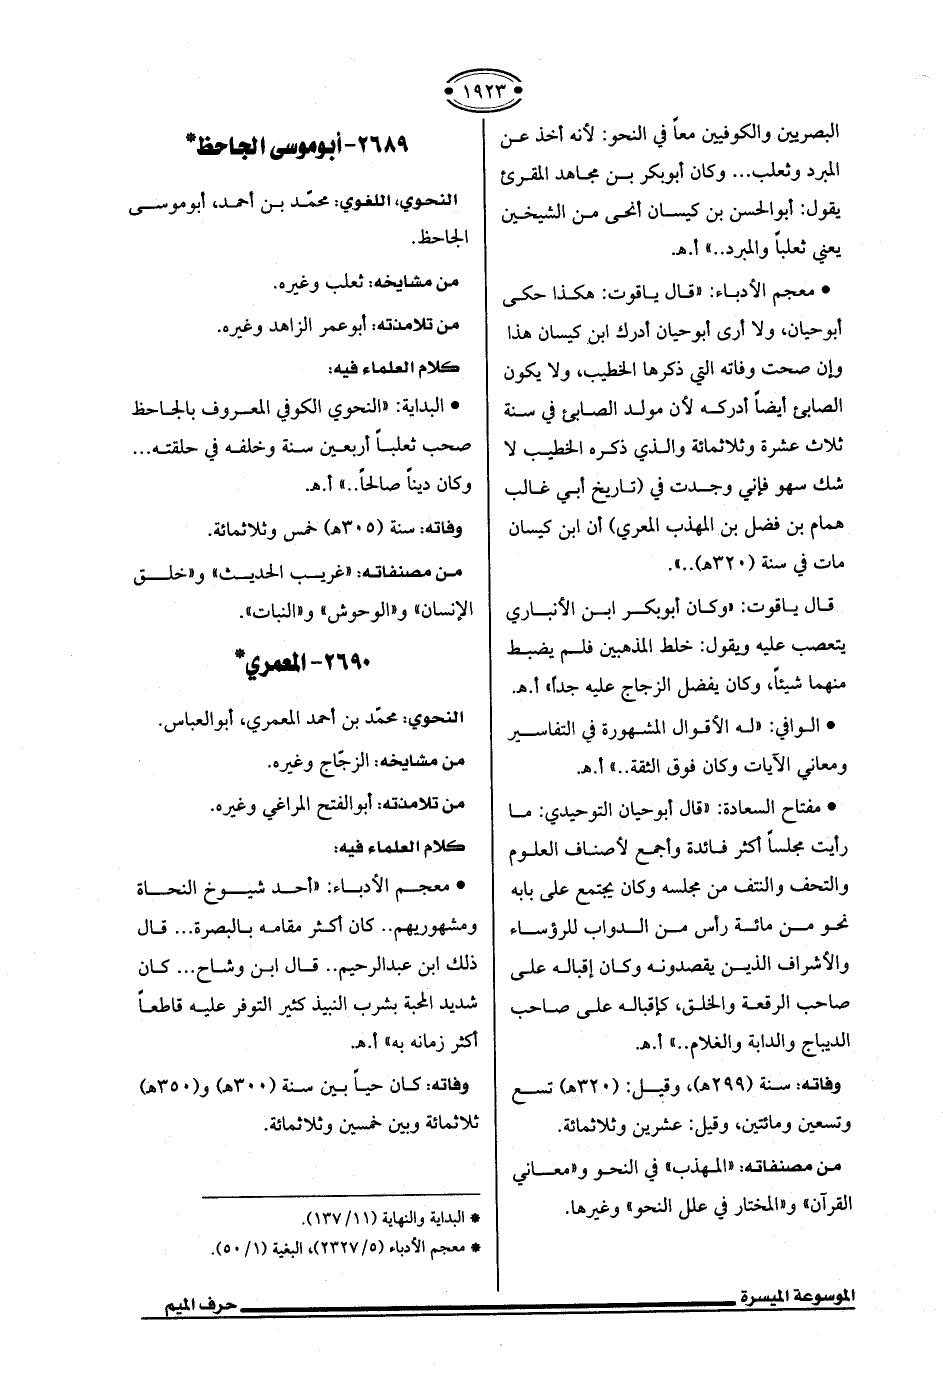 ١٩٢٣
البصريين والكوفيين معاً في النحو: لأنه أخذ عن
المبرد وثعلب... وكان أبوبكر بن مجاهد المقرئ
يقول: أبوالحسن بن كيسان أنحى من الشيخين
يعني ثعلباً والمبرد..» أ.هـ.
• معجم الأدباء: «قال ياقوت: هكذا حكى
أبوحيان، ولا أرى أبوحيان أدرك ابن كيسان هذا
وإن صحت وفاته التي ذكرها الخطيب، ولا يكون
الصابئ أيضاً أدركه لأن مولد الصابئ في سنة
ثلاث عشرة وثلاثمائة والذي ذكره الخطيب لا
شك سهو فإني وجدت في (تاريخ أبي غالب
همام بن فضل بن المهذب المعري) أن ابن كيسان
مات في سنة (٣٢٠هـ)..».
قال ياقوت: «وكان أبوبكر ابن الأنباري
يتعصب عليه ويقول: خلط المذهبين فلم يضبط
منهما شيئاً، وكان يفضل الزجاج عليه جداً» أ.هـ.
• الوافي: «له الأقوال المشهورة في التفاسير
ومعاني الآيات وكان فوق الثقة..» أ.هـ.
• مفتاح السعادة: «قال أبوحيان التوحيدي: ما
رأيت مجلساً أكثر فائدة وأجمع لأصناف العلوم
والتحف والنتف من مجلسه وكان يجتمع على بابه
نحو من مائة رأس من الدواب للرؤساء
والأشراف الذين يقصدونه وكان إقباله على
صاحب الرقعة والخلق، كإقباله على صاحب
الديباج والدابة والغلام..» أ.هـ.
وفاته: سنة (٢٩٩هـ)، وقيل: (٣٢٠هـ) تسع
وتسعين ومائتين، وقيل: عشرين وثلاثمائة.
من مصنفاته: «المهذب» في النحو و«معاني
القرآن» و«المختار في علل النحو» وغيرها.
٢٦٨٩-أبوموسى الجاحظ*
النحوي، اللغوي: محمّد بن أحمد، أبوموسى
الجاحظ.
من مشايخه: ثعلب وغيره.
من تلامذته: أبوعمر الزاهد وغيره.
كلام العلماء فيه:
• البداية: «النحوي الكوفي المعروف بالجاحظ
صحب ثعلباً أربعين سنة وخلفه في حلقته...
وكان ديناً صالحاً..» أ.هـ.
وفاته: سنة (٣٠٥هـ) خمس وثلاثمائة.
من مصنفاته: «غريب الحديث» و«خلق
الإنسان» و«الوحوش» و«النبات».
٢٦٩٠-المعمري*
النحوي: محمّد بن أحمد المعمري، أبوالعباس.
من مشايخه: الزجّاج وغيره.
من تلامذته: أبوالفتح المراغي وغيره.
كلام العلماء فيه:
• معجم الأدباء: «أحد شيوخ النحاة
ومشهوريهم.. كان أكثر مقامه بالبصرة... قال
ذلك ابن عبدالرحيم.. قال ابن وشاح... كان
شديد المحبة بشرب النبيذ كثير التوفر عليه قاطعاً
أكثر زمانه به» أ.هـ.
وفاته: كان حياً بين سنة (٣٠٠هـ) و(٣٥٠هـ)
ثلاثمائة وبين خمسين وثلاثمائة.
* البداية والنهاية (١١/١٣٧).
* معجم الأدباء (٥/٢٣٢٧)، البغية (١/٥٠).
الموسوعة الميسرة
حرف الميم